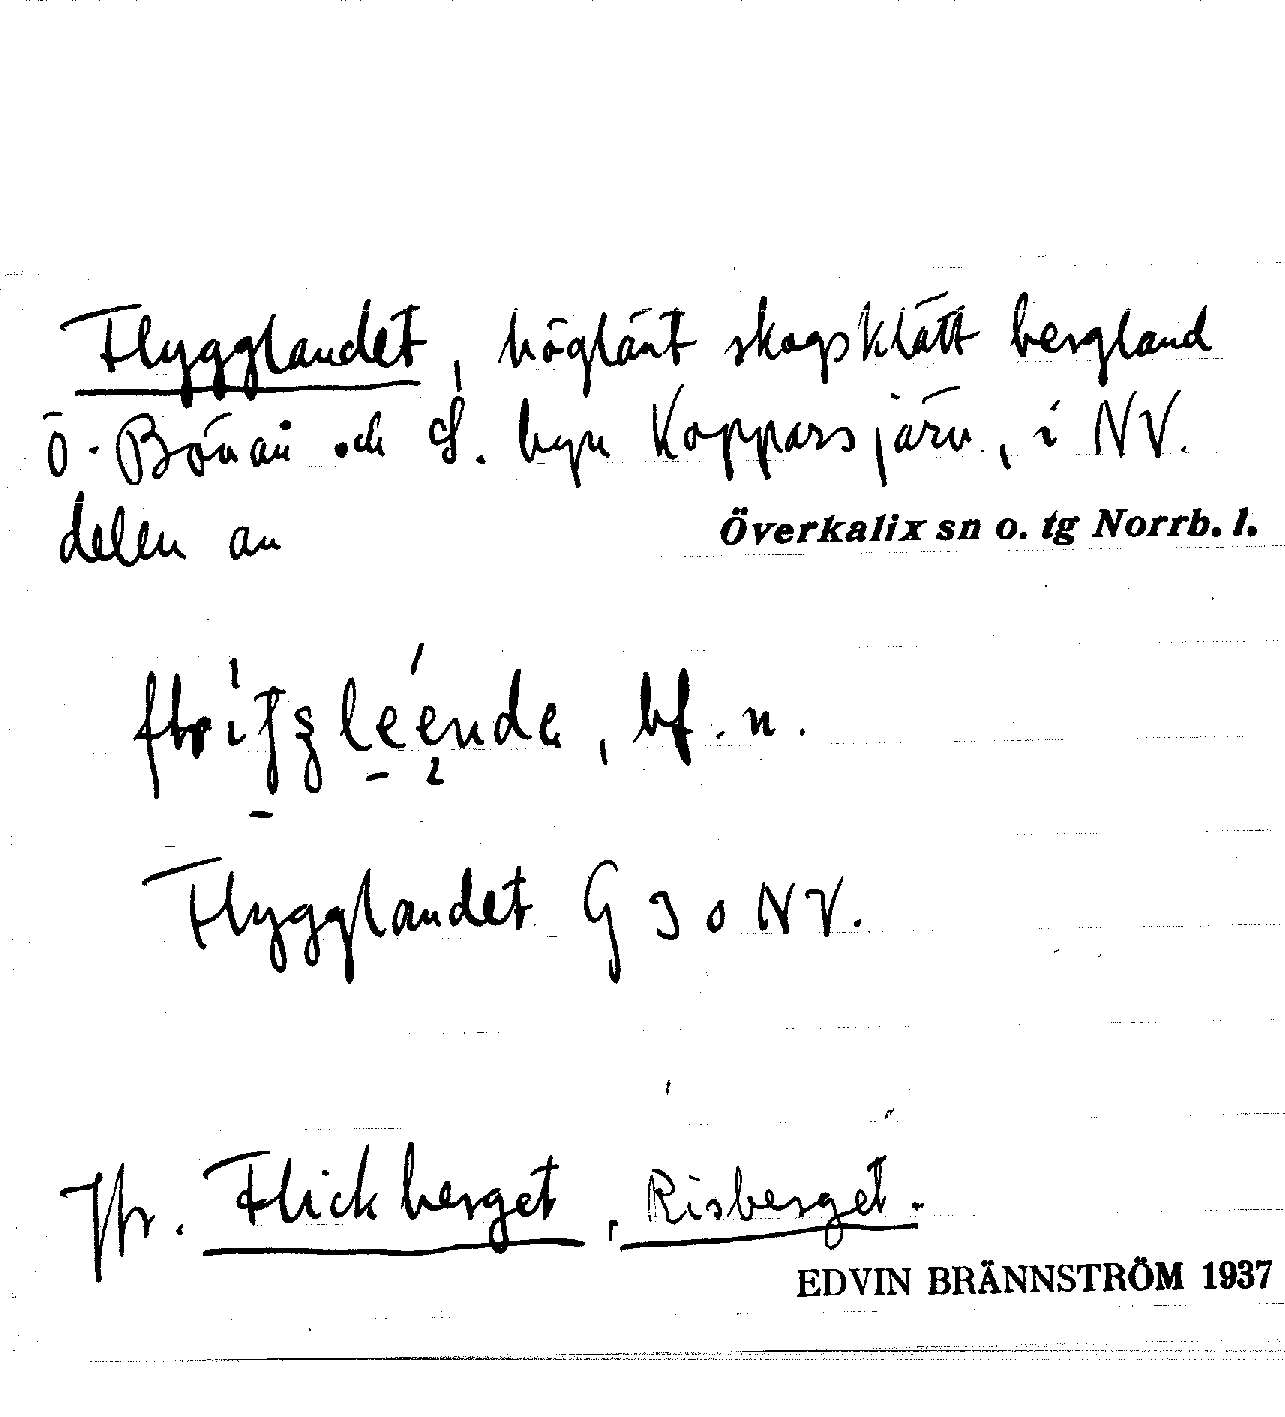 Flygglandet, höglänt skogsklätt bergland
ö. Bönån och S. byn Kopparsjärv, i NV.
delen av
Överkalix sn o. tg Norrb. l.
bf. n.
Flygglandet G 30 NV.
Jfr. Flickberget, Risberget.
EDVIN BRÄNNSTRÖM 1937